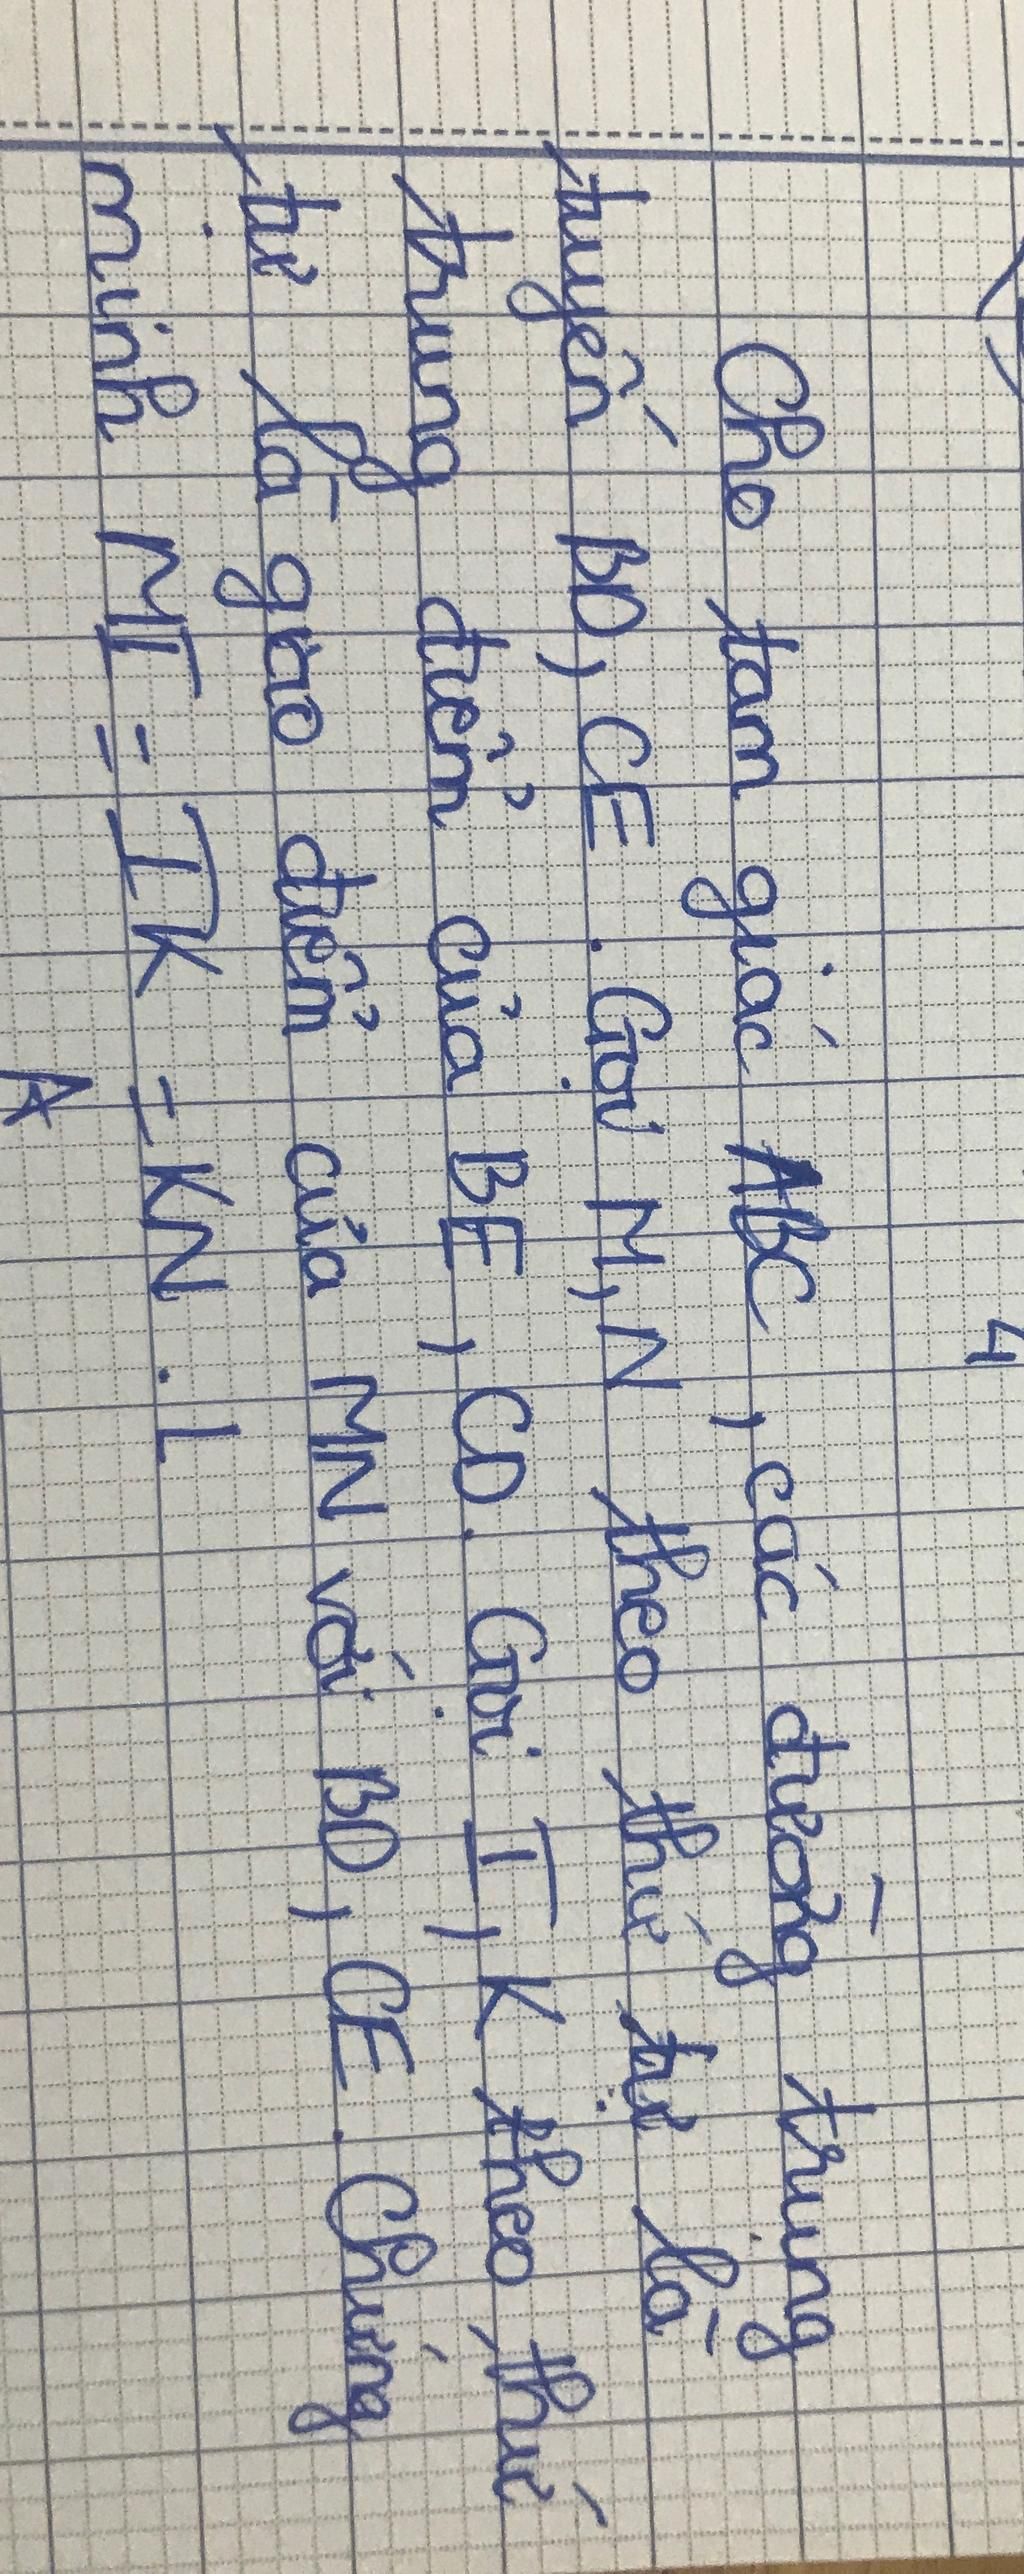 4
Cho tam giác ABC, các đường trung
tuyến BD, CE. Gọi M, N theo thứ tự là
trung điểm của BE, CD. Gọi I, K theo thứ
tự là giao điểm của MN với BD, CE. Chứng
minh MI = IK = KN.
A